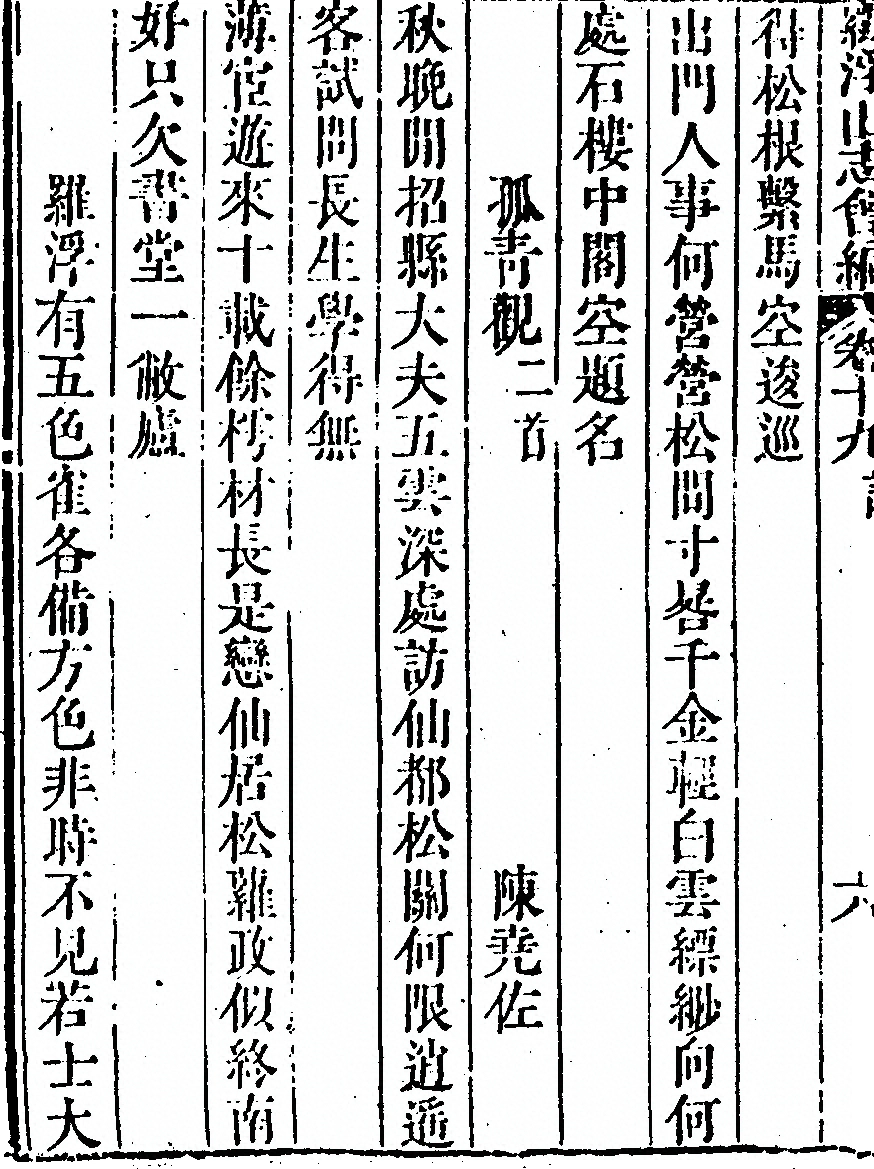 羅浮山志會編 卷十九 詩 六
得松根繫馬空逡巡
出門人事何營營松間寸晷千金輕白雲縹緲向何
處石樓中閣空題名
孤青觀二首 陳堯佐
秋晚閒招縣大夫五雲深處訪仙都松關何限逍遥
客試問長生學得無
薄宦遊來十載餘樗材長是戀仙居松蘿政似終南
好只欠書堂一敝廬
羅浮有五色雀各備方色非時不見若士大